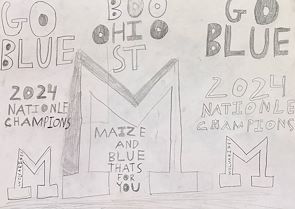 GO
BLUE
BOO
OHIO
ST
GO
BLUE
2024
NATIONLE
CHAMPIONS
MAIZE
AND
BLUE
THATS
FOR
YOU
2024
NATIONLE
CHAMPIONS